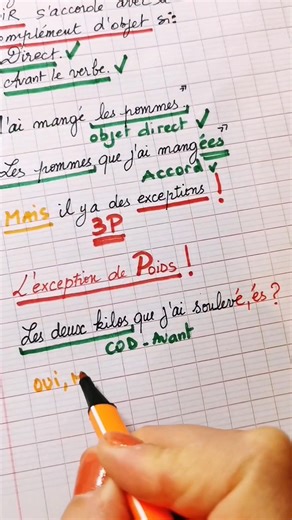 OIR s'accorde avec
complément d'objet si:
Direct. ✓
Avant le verbe. ✓
J'ai mangé les pommes"
objet direct ✓
Les pommes, que j'ai mangées"
Accord ✓
MAIS il y a des exceptions !
3P
L'exception de POIDS !
Les deux kilos que j'ai soulevé, és ?
COD - Avant
OUI, M